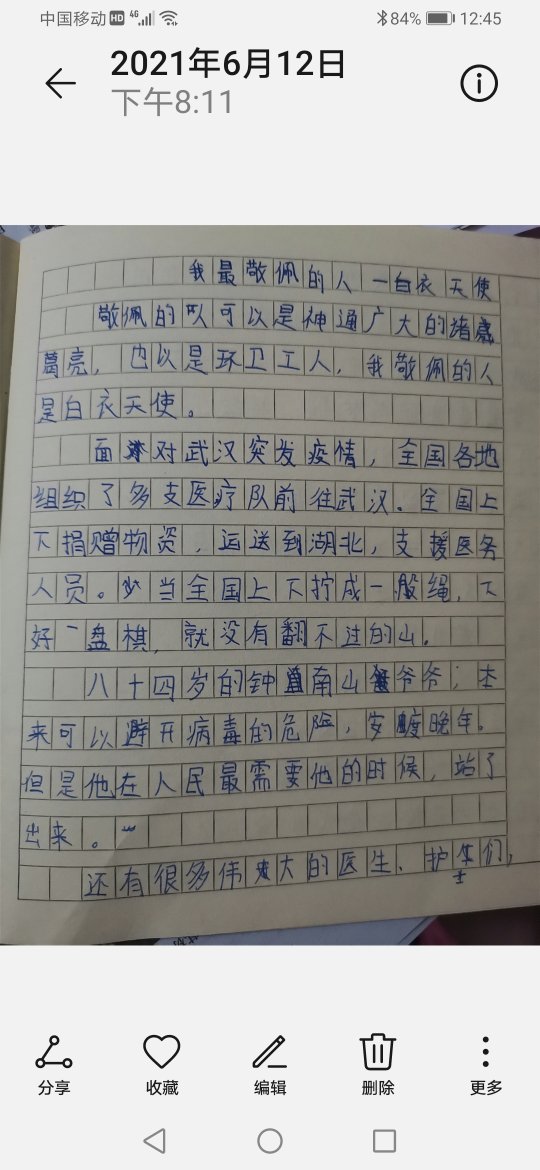 中国移动 HD 4G 84% 12:45
2021年6月12日
下午8:11
我最敬佩的人一白衣天使
敬佩的可以是神通广大的诸
葛亮，也以是环卫工人，我敬佩的人
是白衣天使。
面对武汉突发疫情，全国各地
组织了多支医疗队前往武汉。全国上
下捐赠物资，运送到湖北，支援医务
人员。当全国上下拧成一股绳，下
好一盘棋，就没有翻不过的山。
八十四岁的钟南山爷爷；本
来可以避开病毒的危险，安度晚年。
但是他在人民最需要他的时候，站了
出来。
还有很多伟大的医生、护士们，
分享 收藏 编辑 删除 更多